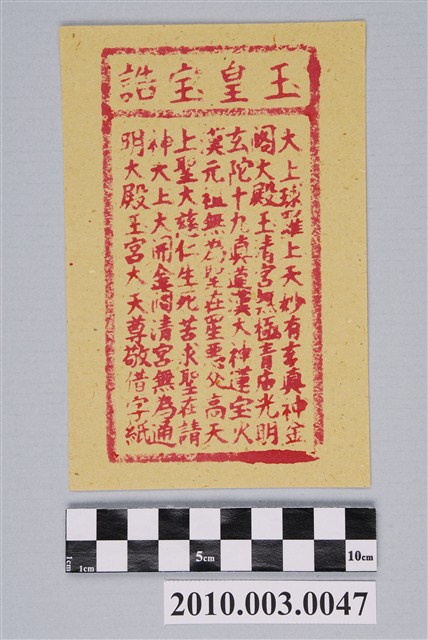 玉皇宝誥
大上球羅上天妙有玄真神金
閣大殿玉青宮無極青南光明
玄陀十九真蓮漢大神蓮宝火
漢元祖無為聖在罡惡父高天
上聖大慈仁生死苦求聖在請
神大上大開金闕清宮無為通
明大殿玉宮大天尊敬借字紙
1cm
1cm
5cm
10cm
2010.003.0047